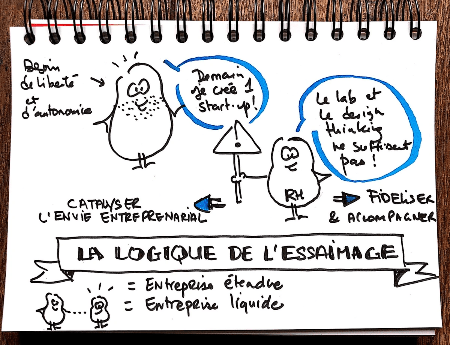 Besoin
de liberté
et
d'autonomie
Demain,
je crée 1
start-up!
Le lab et
le design
thinking
ne suffisent
pas !
!
RH
CATALYSER
L'ENVIE ENTREPRENARIAL
FIDELISER
& ACCOMPAGNER
LA LOGIQUE DE L'ESSAIMAGE
= Entreprise étendue
= Entreprise liquide